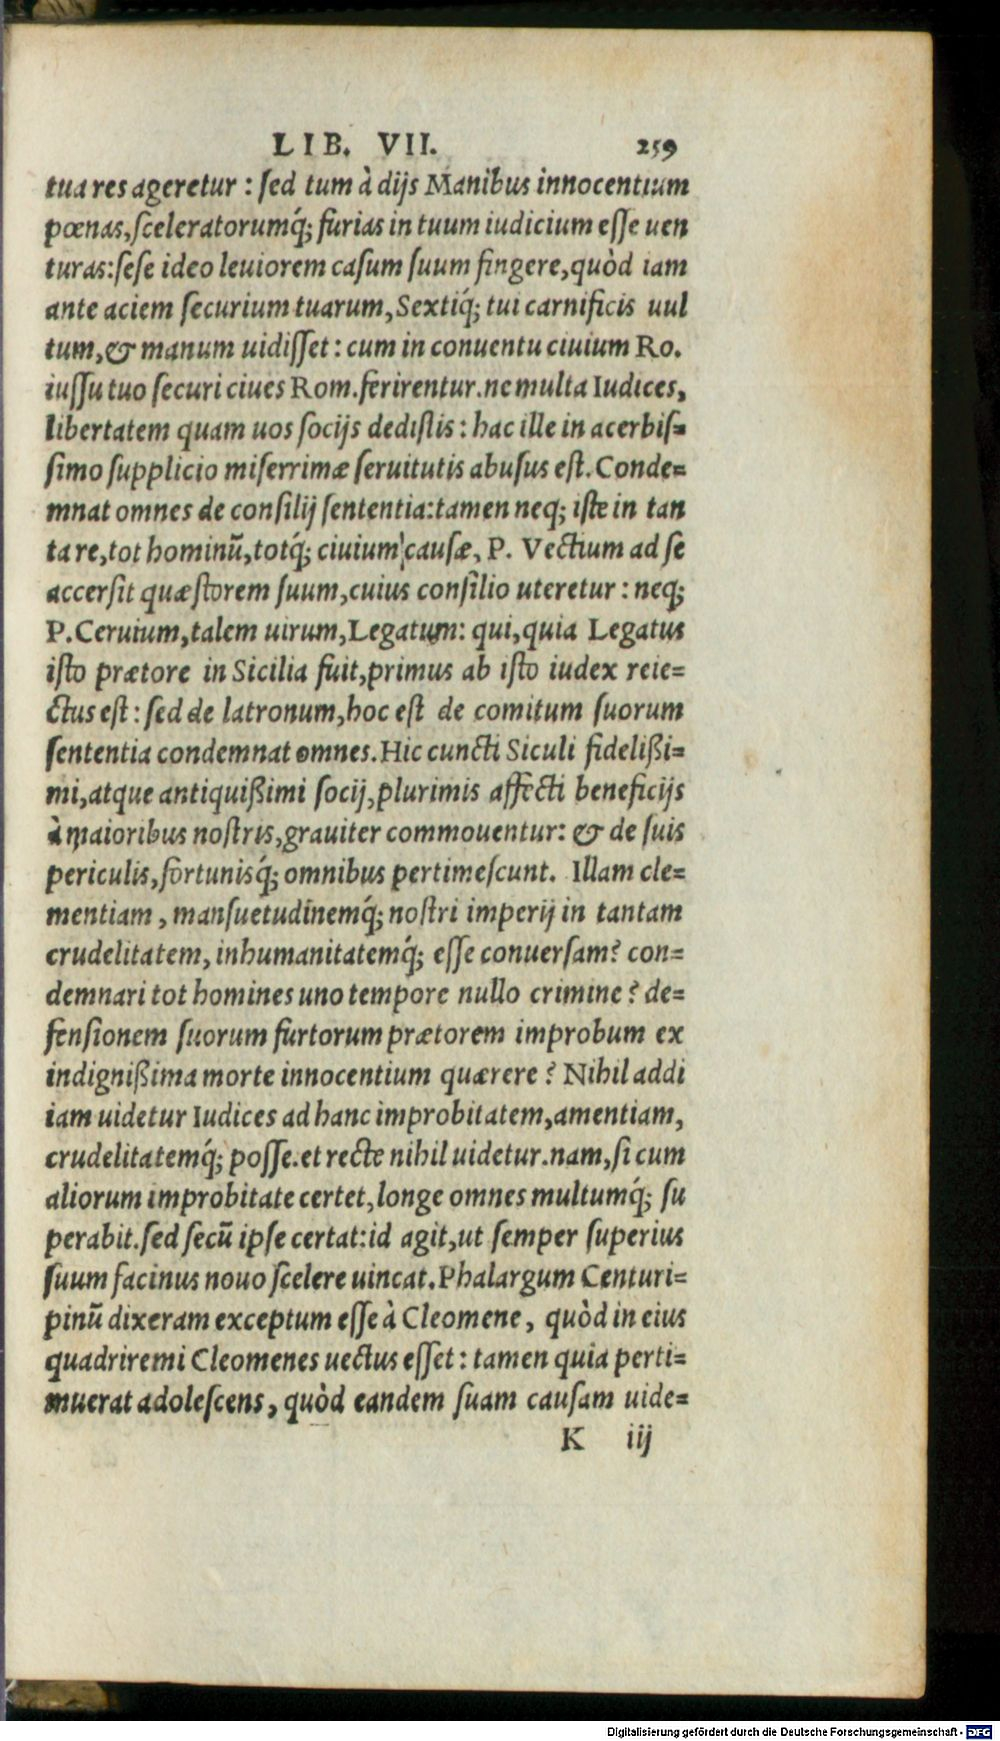 LIB. VII. 259
tua res ageretur : ſed tum à dijs Manibus innocentium
pœnas,ſceleratorumq́; furias in tuum iudicium eſſe uen
turas:ſeſe ideo leuiorem caſum ſuum fingere,quòd iam
ante aciem ſecurium tuarum,Sextiq́; tui carnificis uul
tum,& manum uidiſſet : cum in conuentu ciuium Ro.
iuſſu tuo ſecuri ciues Rom.ferirentur.ne multa Iudices,
libertatem quam uos ſocijs dediſtis : hac ille in acerbiſ=
ſimo ſupplicio miſerrimæ ſeruitutis abuſus eſt.Conde=
mnat omnes de conſilij ſententia:tamen neq; iſte in tan
ta re,tot hominũ,totq́; ciuium cauſæ, P. Vectium ad ſe
accerſit quæſtorem ſuum,cuius conſilio uteretur : neq;
P.Ceruium,talem uirum,Legatum: qui,quia Legatus
iſto prætore in Sicilia fuit,primus ab iſto iudex reie=
ctus eſt : ſed de latronum,hoc eſt de comitum ſuorum
ſententia condemnat omnes.Hic cuncti Siculi fidelißi=
mi,atque antiquißimi ſocij,plurimis affecti beneficijs
à maioribus noſtris,grauiter commouentur: & de ſuis
periculis,fortunisq́; omnibus pertimeſcunt. Illam cle=
mentiam, manſuetudinemq́; noſtri imperij in tantam
crudelitatem, inhumanitatemq́; eſſe conuerſam? con=
demnari tot homines uno tempore nullo crimine ? de=
fenſionem ſuorum furtorum prætorem improbum ex
indignißima morte innocentium quærere ? Nihil addi
iam uidetur Iudices ad hanc improbitatem,amentiam,
crudelitatemq́; poſſe.et recte nihil uidetur.nam,ſi cum
aliorum improbitate certet,longe omnes multumq́; ſu
perabit.ſed ſecũ ipſe certat:id agit,ut ſemper ſuperius
ſuum facinus nouo ſcelere uincat.Phalargum Centuri=
pinũ dixeram exceptum eſſe à Cleomene, quòd in eius
quadriremi Cleomenes uectus eſſet : tamen quia perti=
muerat adoleſcens, quòd eandem ſuam cauſam uide=
K iij
Digitalisierung gefördert durch die Deutsche Forschungsgemeinschaft - DFG